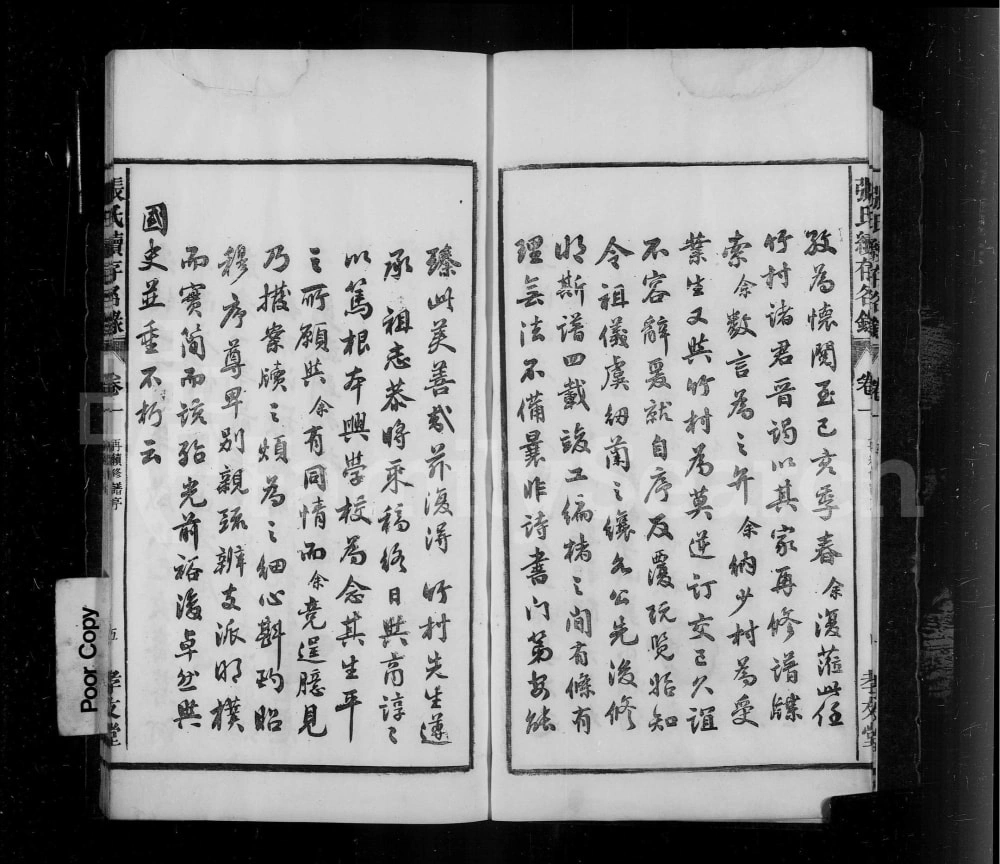 孜為懷閱至己亥季春余復蒞此任
竹村諸君晉謁以其家再修譜牒
索余數言為之弁余納少村為受
業生又與竹村為莫逆訂交已久誼
不容辭爰就自序反覆玩覽始知
令祖儀虞紉蘭之纘名公先後修
明斯譜四載竣工編楮之間有條有
理無法不備曩昨詩書门第安能
臻此美善哉茲復得 竹村先生遵
承祖志恭時采稿終日與高諄之
以篤根本興學校為念其生平
之所願與余有同情而余竟逞臆見
乃撥案牘之煩為之細心斟酌昭
穆序尊卑別親疏辨支派明樸
而實簡而該殆光前裕後卓然與
國史並垂不朽云
張氏續存名錄
卷一
再續修譜序
五
孝友堂
Poor Copy
FamilySearch